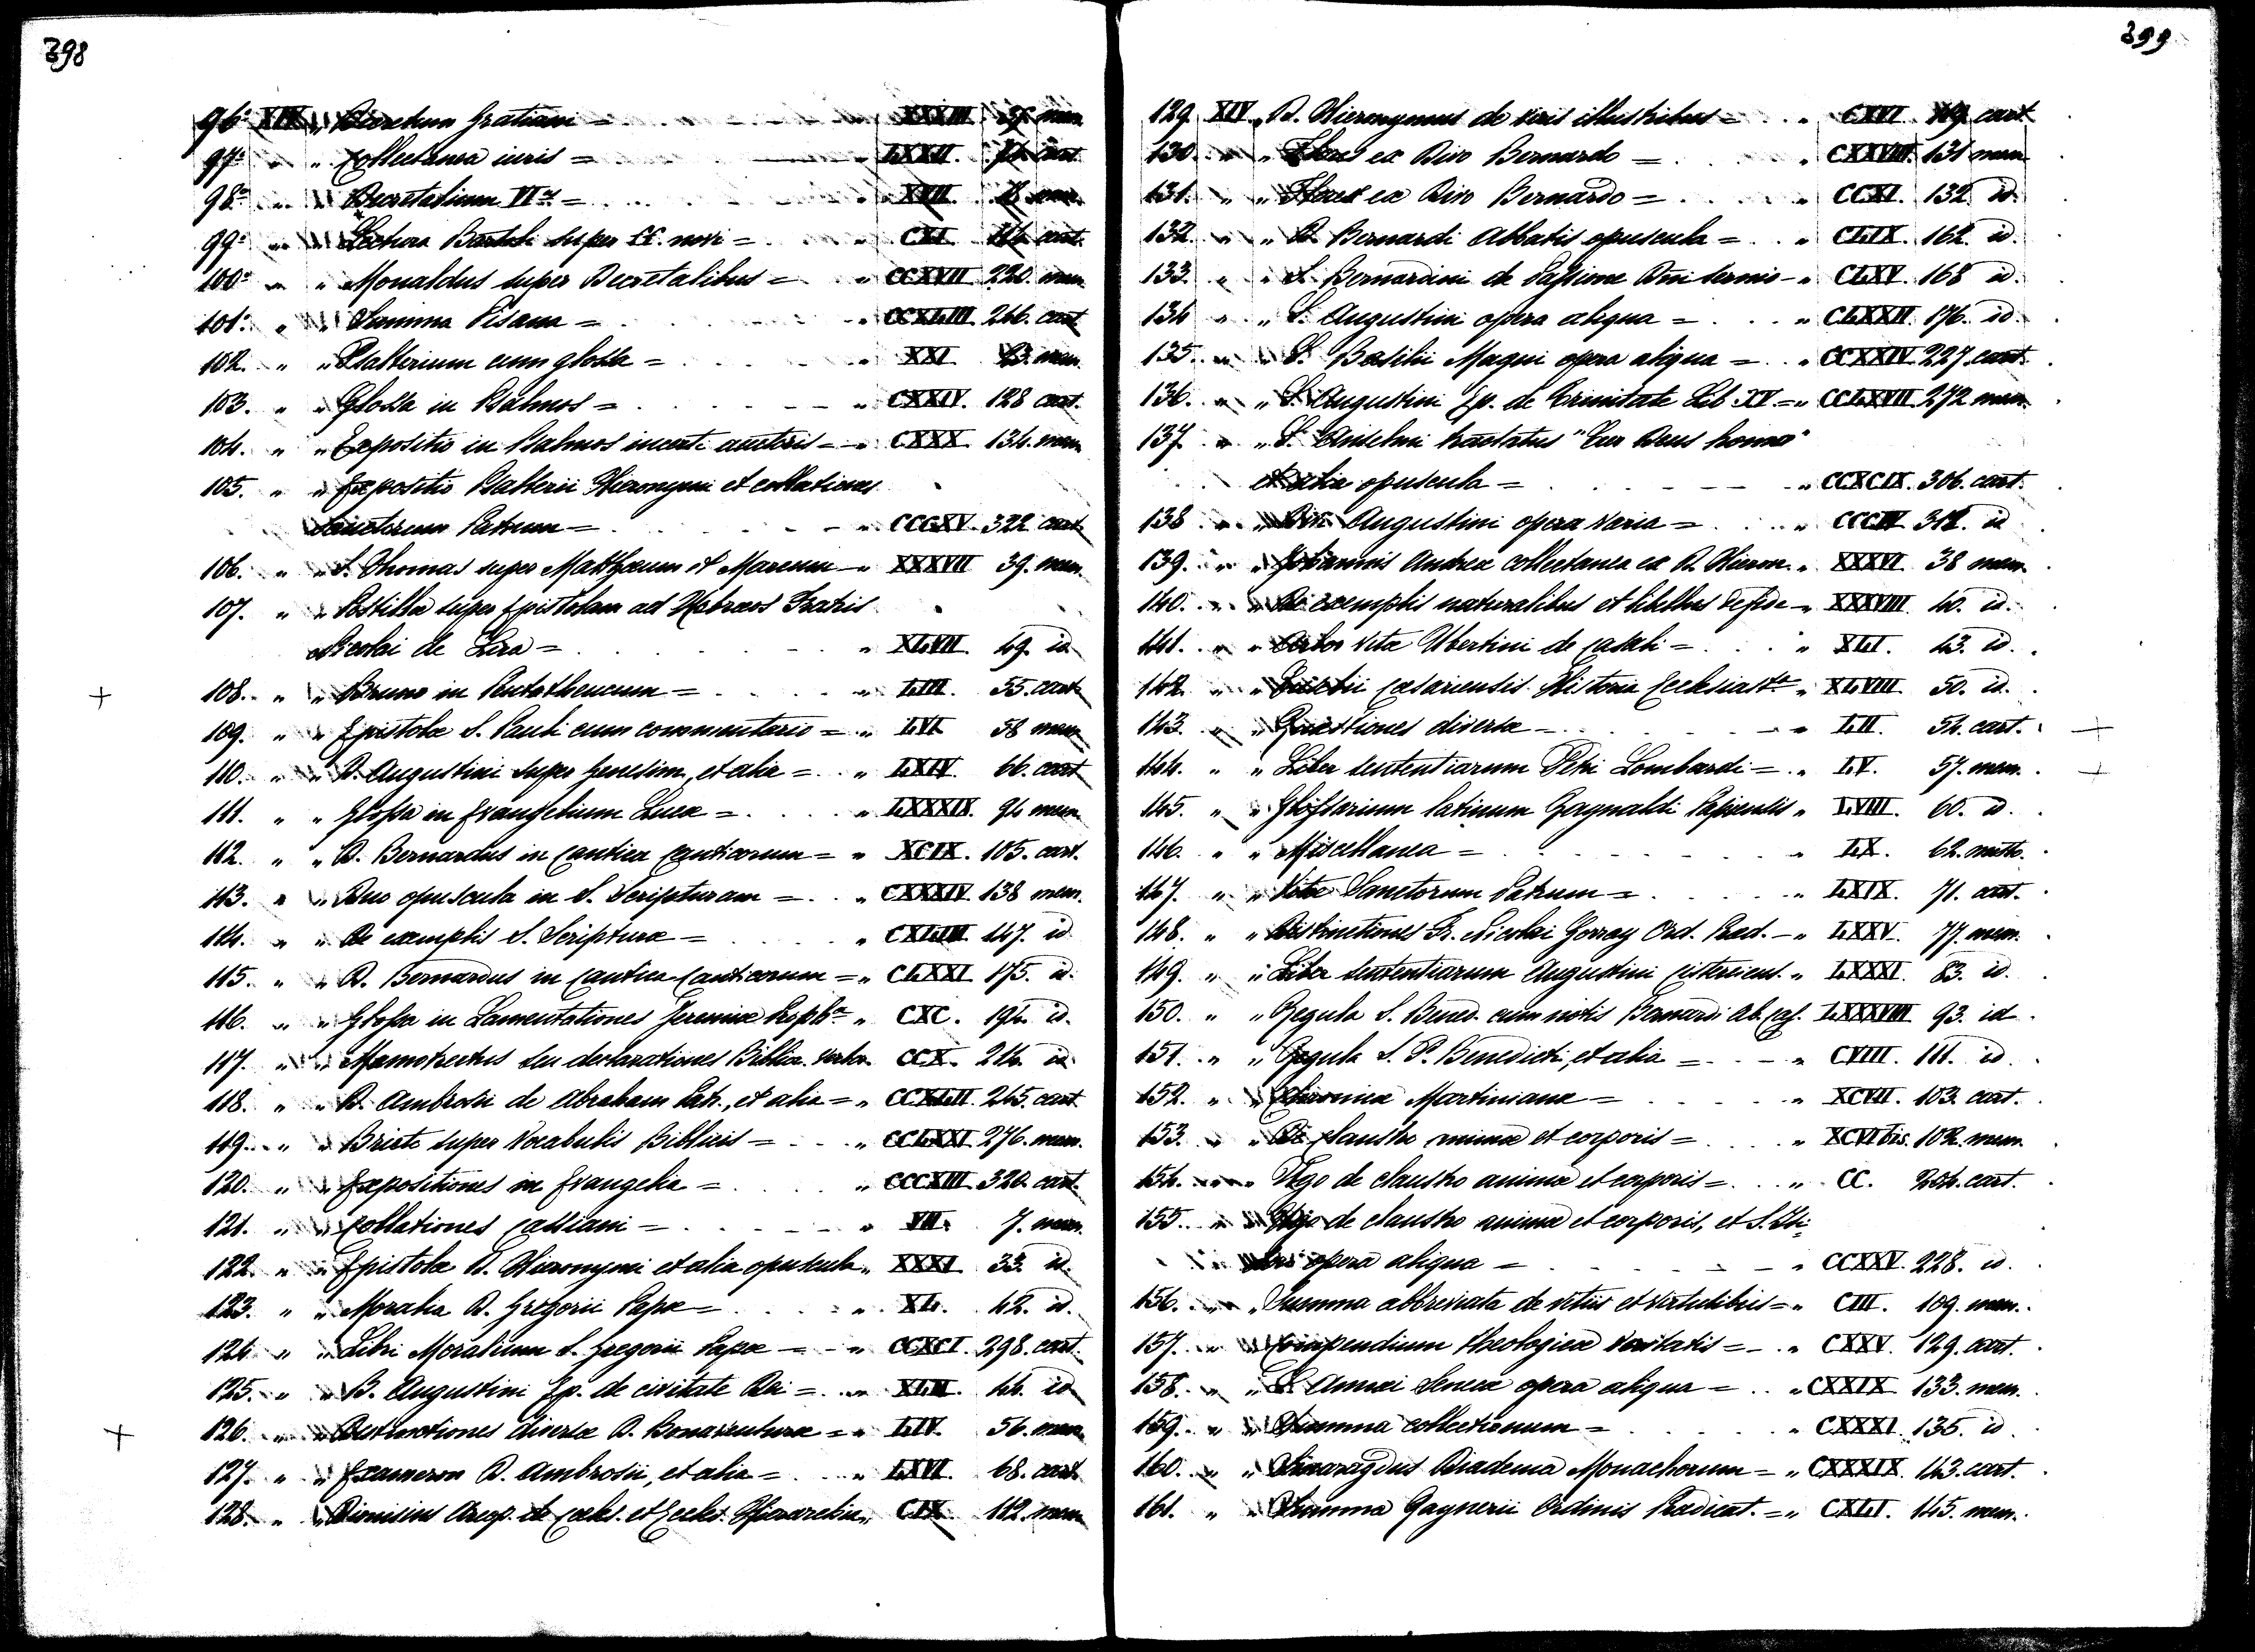 398
96. XIV. " Decretum Gratiani = " XXXIII 35. mem.
97. " " Collectanea iuris = " LXXII. 74. cart.
98. " " Decretalium VI.us = " XVII. 18. mem.
99. " " Lectura Bartoli super ff. novi = " CXI. 114. cart.
100. " " Monaldus super Decretalibus = " CCXVII 220. mem.
101. " " Summa Pisana = " CCXLIII 246. cart.
102. " " Psalterium cum glossa = " XXI. 23. mem.
103. " " Glossa in Psalmos = " CXXIV. 128 cart.
104. " " Expositio in Psalmos incerti auctoris = " CXXX. 134. mem.
105. " " Expositio Psalterii Hieronymi et collationes
Sanctorum Patrum = " CCCXV. 322 cart.
106. " " S. Thomas super Matthæum et Marcum = " XXXVII 39. mem.
107. " " Postilla super Epistolam ad Hebræos Fratris
Nicolai de Lira = " XLVII. 49. id.
+ 108. " " Bruno in Pentatheucum = " LIII. 55. cart.
109. " " Epistolæ S. Pauli cum commentario = " LVI. 58 mem.
110. " " D. Augustini super genesim, et alia = " LXIV. 66. cart.
111. " " Glossa in Evangelium Lucæ = " LXXXIX. 94 mem.
112. " " D. Bernardus in Cantica Canticorum = " XCIX. 105. cart.
113. " " Duo opuscula in S. Scripturam = " CXXXIV. 138 mem.
114. " " De exemplis S. Scripturæ = " CXLIII. 147. id.
115. " " D. Bernardus in Cantica Canticorum = " CLXXI. 175. id.
116. " " Glossa in Lamentationes Jeremiæ Proph.æ " CXC. 194. id.
117. " " Mamotrectus seu declarationes Biblicæ verbor. CCX. 214. id.
118. " " D. Ambrosii de Abraham Patr., et alia = " CCXLII. 245. cart.
119. " " Brito super Vocabulis Biblicis = " CCLXXI. 276. mem.
120. " " Expositiones in Evangelia = " CCCXIII. 320. cart.
121. " " Collationes Cassiani = " VII. 7. mem.
122. " " Epistolæ D. Hieronymi et alia opuscula " XXXI. 33. id.
123. " " Moralia D. Gregorii Papæ = " XL. 42. id.
124. " " Libri Moralium S. Gregorii Papæ = " CCXCI. 298. cart.
125. " " B. Augustini Ep. de civitate Dei = " XLII. 44. id.
+ 126. " " diversæ D. Bonaventuræ = " LIV. 56. mem.
127. " " Exameron D. Ambrosii, et alia = " LXVI. 68. cart.
128. " " Dionisius Areop. de Cœles. et Eccles. Hierarchia " CIX. 112. mem.
399
129. XIV. " D. Hieronymus de viris illustribus = " CXVI. 119. cart.
130. " " Flores ex Divo Bernardo = " CXXVIII. 131 mem.
131. " " Flores ex Divo Bernardo = " CCXI. 132. id.
132. " " D. Bernardi Abbatis opuscula = " CLIX. 162. id.
133. " " S. Bernardini de Passione Dni sermo = " CLXV. 168 id.
134. " " S. Augustini opera aliqua = " CLXXII. 176. id.
135. " " S. Basilii Magni opera aliqua = " CCXXIV. 227. cart.
136. " " S. Augustini Ep. de Trinitate Lib. XV. = " CCLXVII. 272 mem.
137. " " S. Anselmi tractatus "Cur Deus homo"
et alia opuscula = " CCXCIX. 306. cart.
138. " " Divi Augustini opera varia = " CCCIV. 311. id.
139. " " Johannis Andreæ collectanea ex D. Hieron. " XXXVI. 38 mem.
140. " " De exemplis naturalibus et libellus de fide = " XXXVIII. 40. id.
141. " " Arbor Vitæ Ubertini de Casali = " XLI. 43. id.
142. " " Eusebii Cæsariensis Historia Ecclesiast.ca " XLVIII. 50. id.
143. " " Quæstiones diversæ = " LII. 54. cart. +
144. " " Liber sententiarum Petri Lombardi = " LV. 57. mem. +
145. " " Glossarium latinum Papiensis " LVIII. 60. id.
146. " " Miscellanea = " LX. 62.
147. " " Vitæ Sanctorum Patrum = " LXIX. 71. cart.
148. " " Distinctiones Fr. Nicolai Gorray Ord. Præd. = " LXXV. 77. mem.
149. " " Liber sententiarum Augustini Cisterciens. " LXXXI. 83. id.
150. " " Regula S. Bened. cum notis Bernardi Ab. Cas. LXXXVIII 93. id.
151. " " Regula S. P. Benedicti, et alia = " CVIII. 111. id.
152. " " Chronica Martiniana = " XCVII. 103. cart.
153. " " De Claustro animæ et corporis = " XCVI bis. 102. mem.
154. " " Ugo de claustro animæ et corporis = " CC. 204. cart.
155. " " Ugo de claustro animæ et corporis, et
opera aliqua = " CCXXV. 228. id.
156. " " Summa abbreviata de vitiis et virtutibus = " CIII. 109. mem.
157. " " Compendium theologicæ veritatis = " CXXV. 129. cart.
158. " " L. Annæi Senecæ opera aliqua = " CXXIX. 133. mem.
159. " " Summa collectionum = " CXXXI. 135. id.
160. " " Smaragdus Diadema Monachorum = " CXXXIX. 143. cart.
161. " " Summa Raynerii Ordinis Prædicat. = " CXLI. 145. mem.